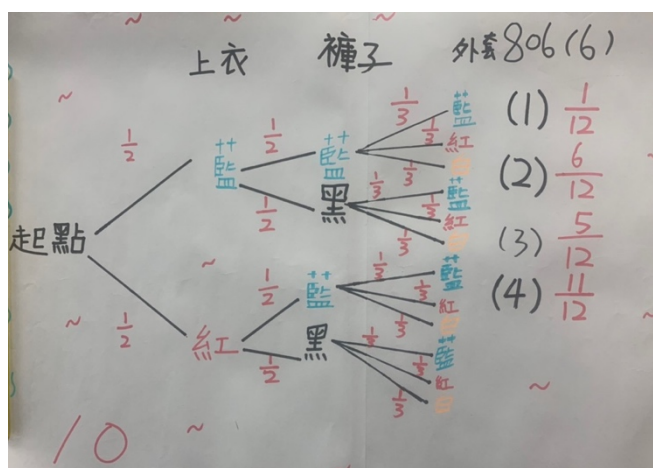 上衣 褲子 外套 806(6)
起點
1/2 藍 1/2 藍 1/3 藍
1/3 紅
1/3 白
1/2 黑 1/3 藍
1/3 紅
1/3 白
1/2 紅 1/2 藍 1/3 藍
1/3 紅
1/3 白
1/2 黑 1/3 藍
1/3 紅
1/3 白
(1) 1/12
(2) 6/12
(3) 5/12
(4) 11/12
10